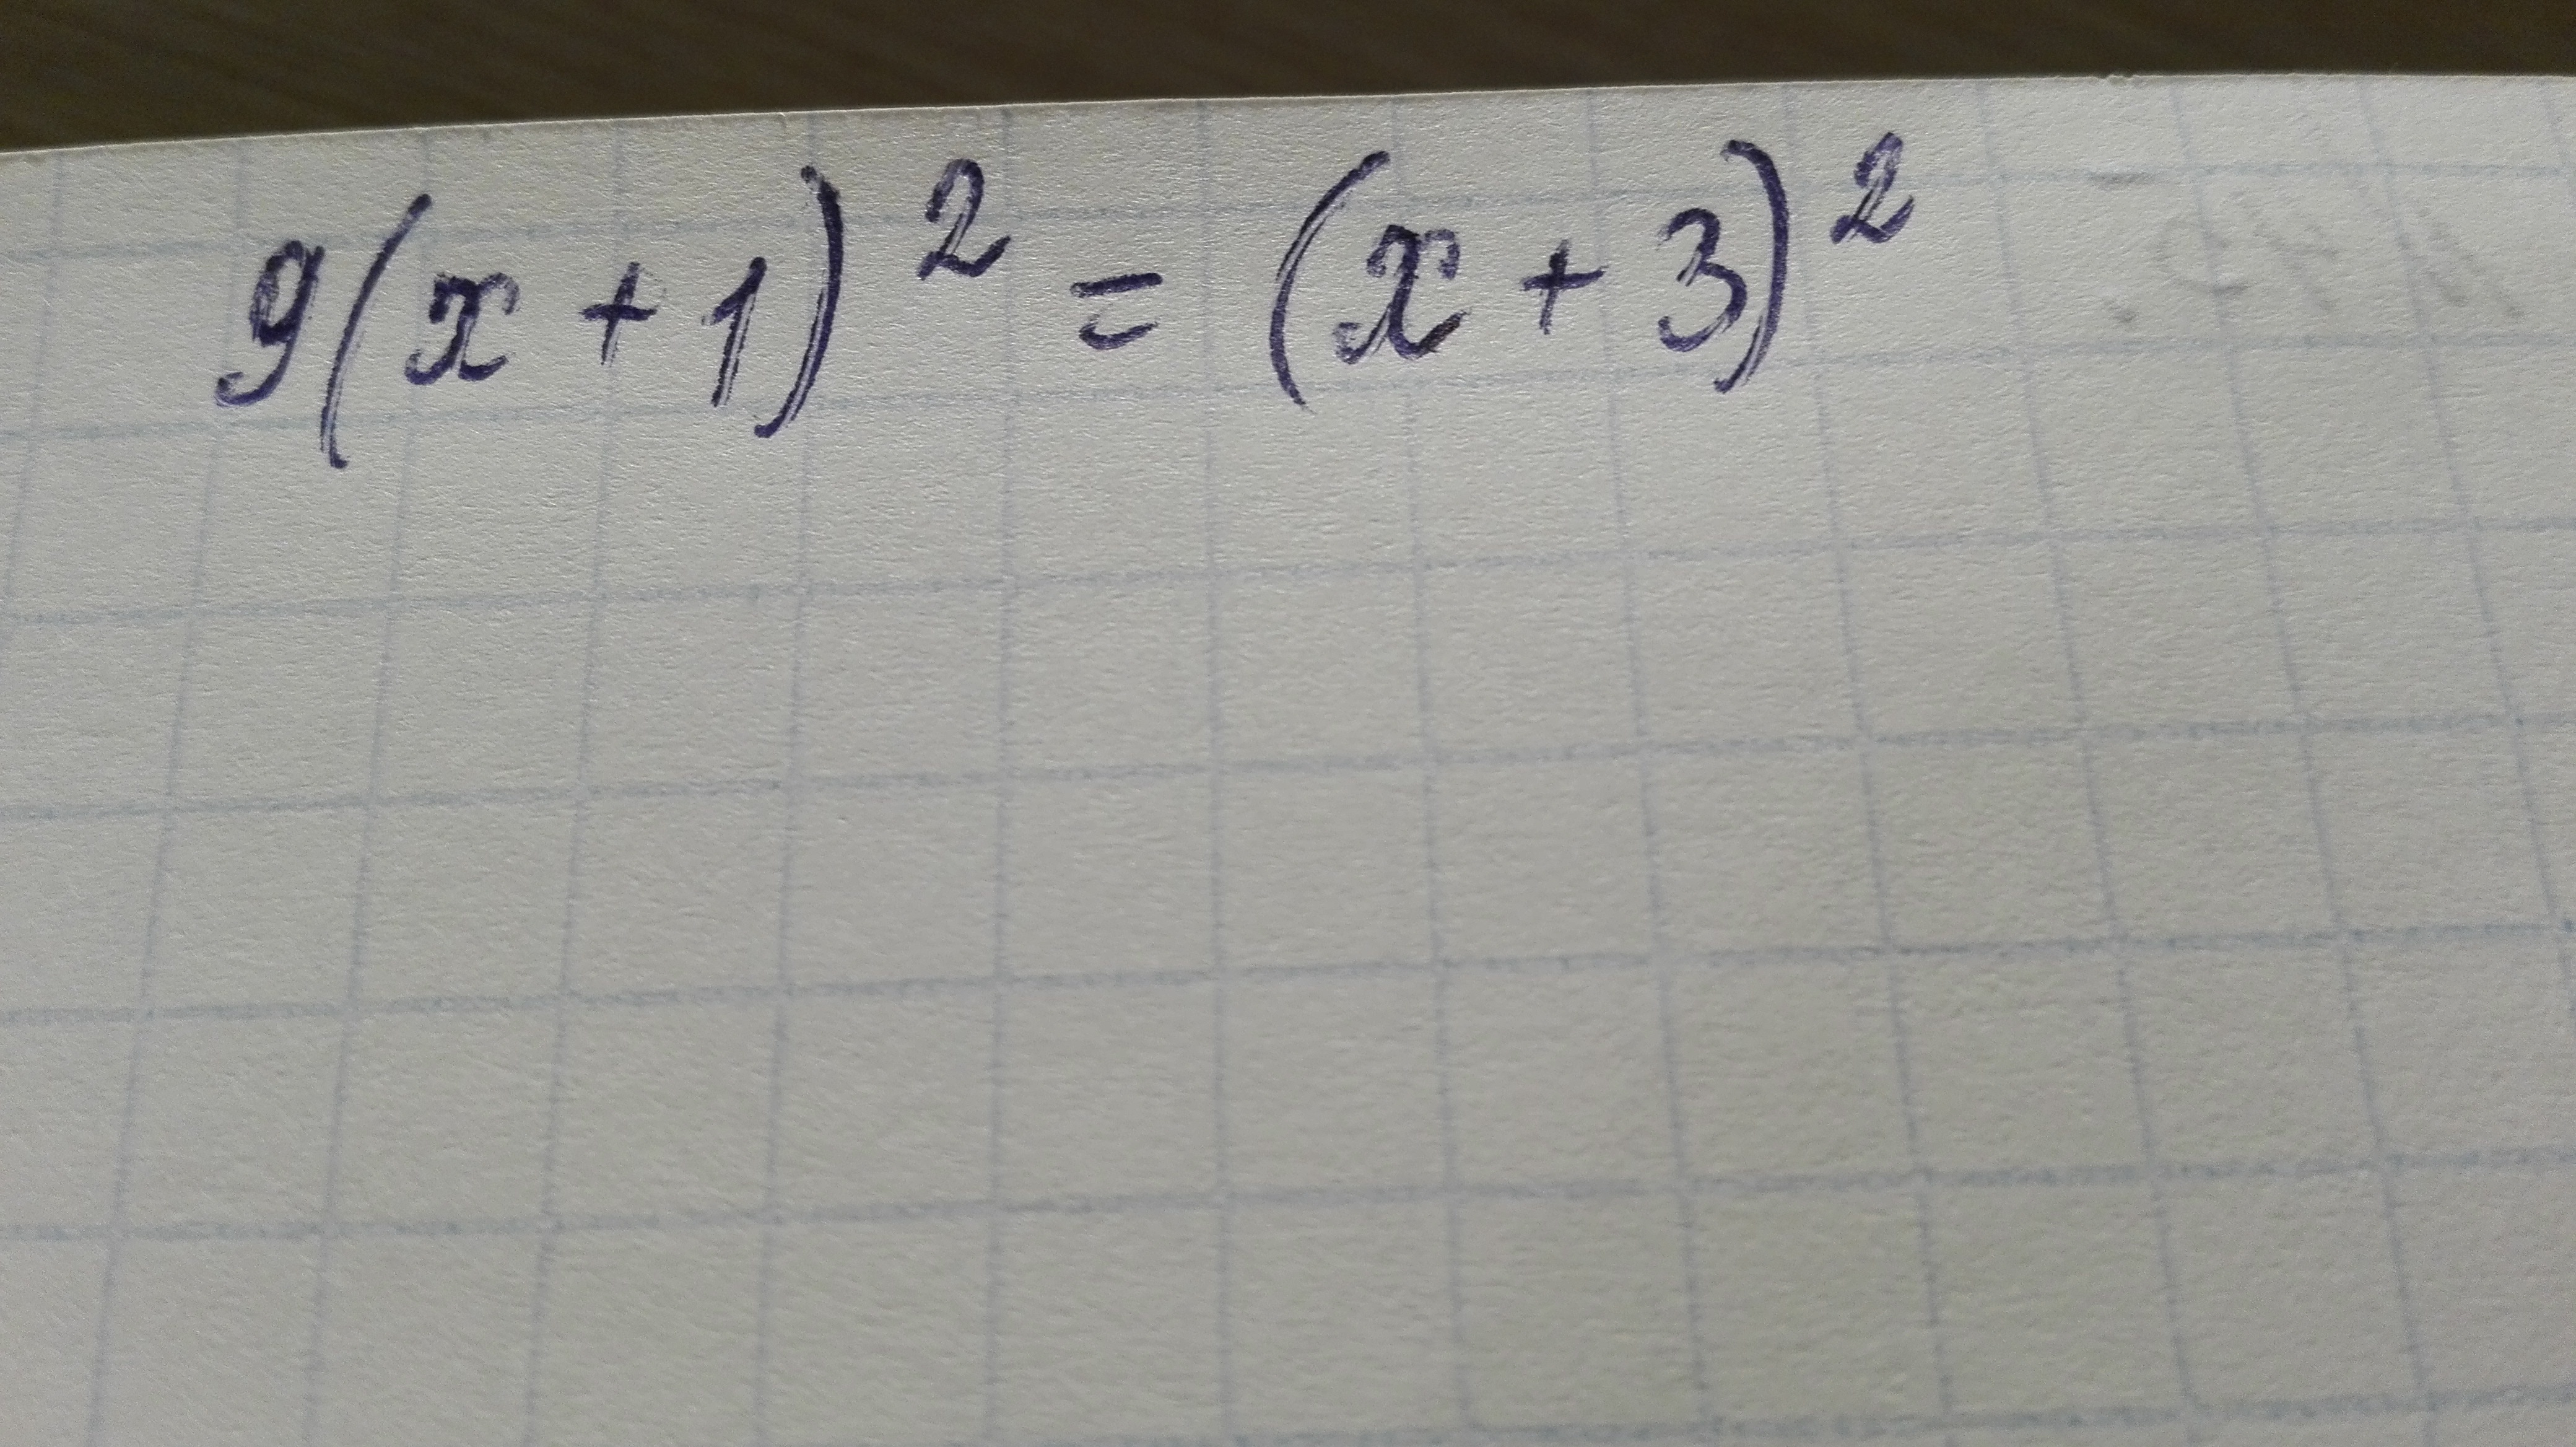 9(x+1)² = (x+3)²